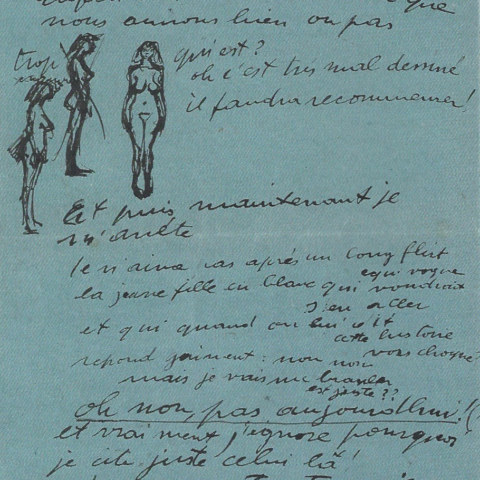 que
nous aurions bien ou pas
trop
qui est?
oh c'est très mal dessiné
il faudra recommencer!
Et puis maintenant je
m'arrête
après un long flirt
la jeune fille en blanc qui voudrait
s'en aller
et qui quand on lui dit
cette histoire
vous choque
repond joiment: non non
mais je vais me branler
est juste??
oh non, pas aujourd'hui!!
et vraiment j'ignore pourquoi
je cite juste celui là!